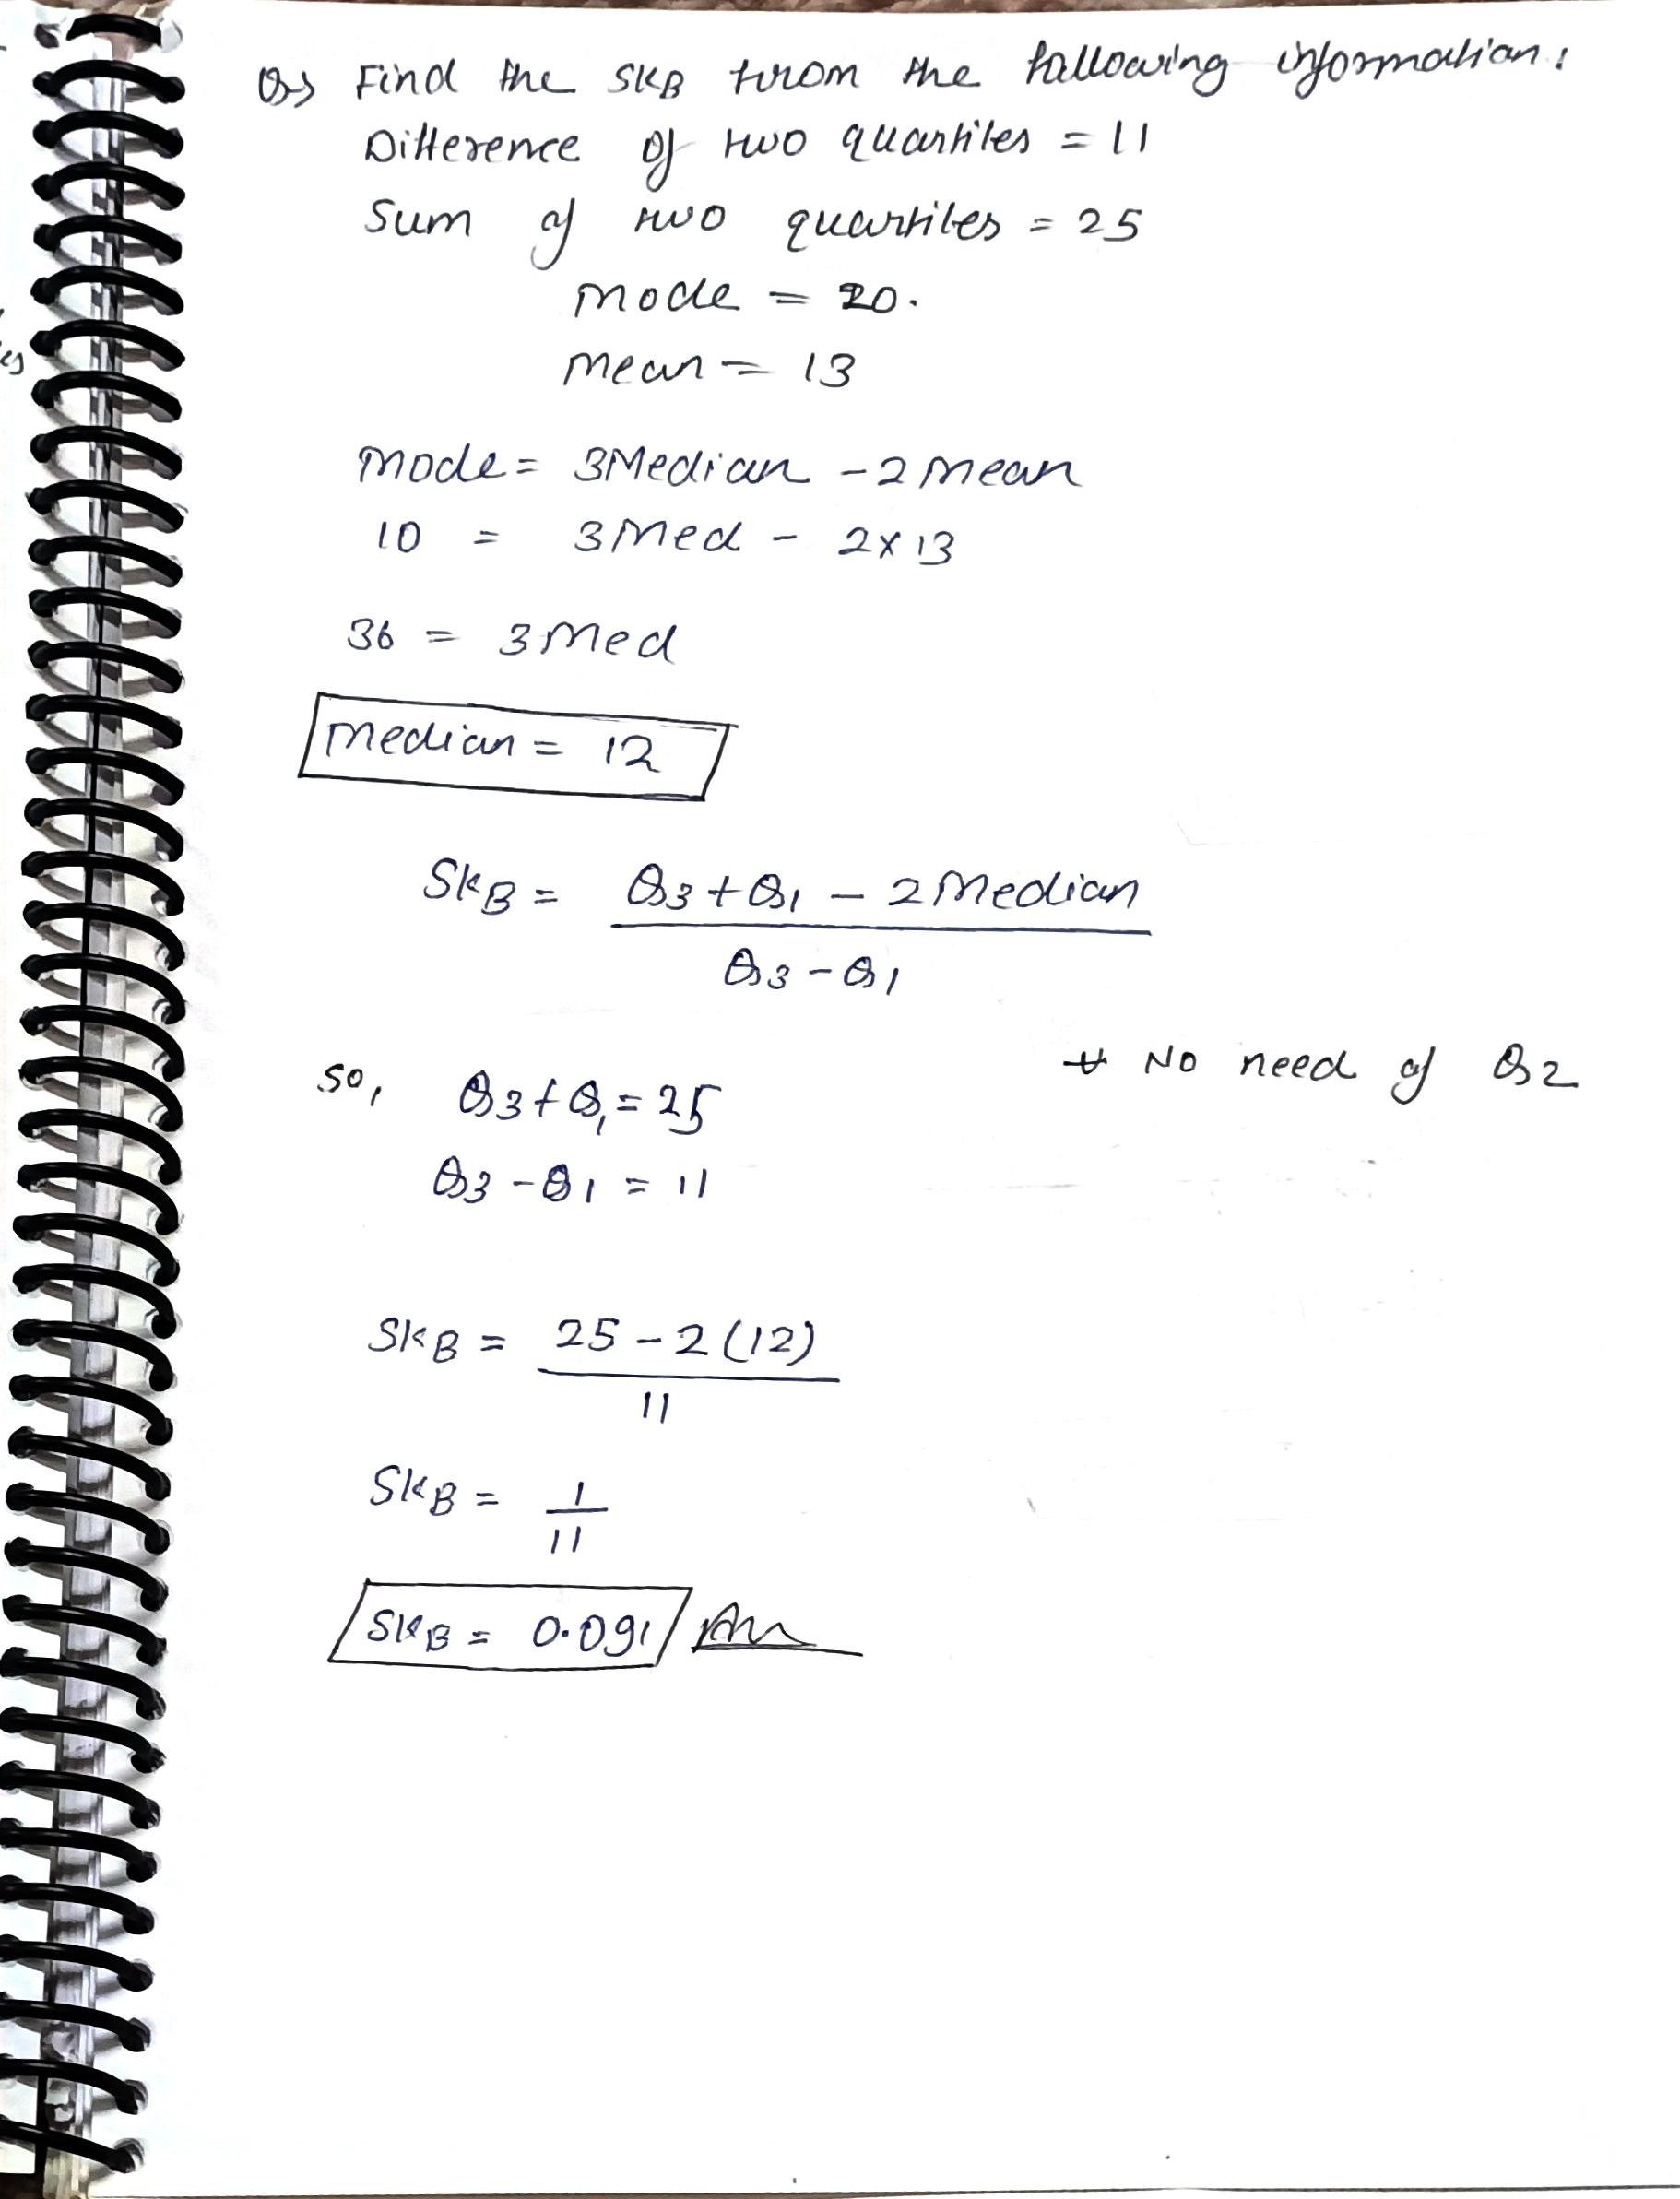 Q) Find the SKB from the following information:
Difference of two quartiles = 11
Sum of two quartiles = 25
mode = 20.
mean = 13
mode = 3Median - 2 mean
10 = 3 Med - 2x13
36 = 3 Med
median = 12
SKB = Q3 + Q1 - 2 Median
Q3 - Q1
* No need of Q2
so, Q3 + Q1 = 25
Q3 - Q1 = 11
SKB = 25 - 2 (12)
11
SKB = 1
11
SKB = 0.091 Ans